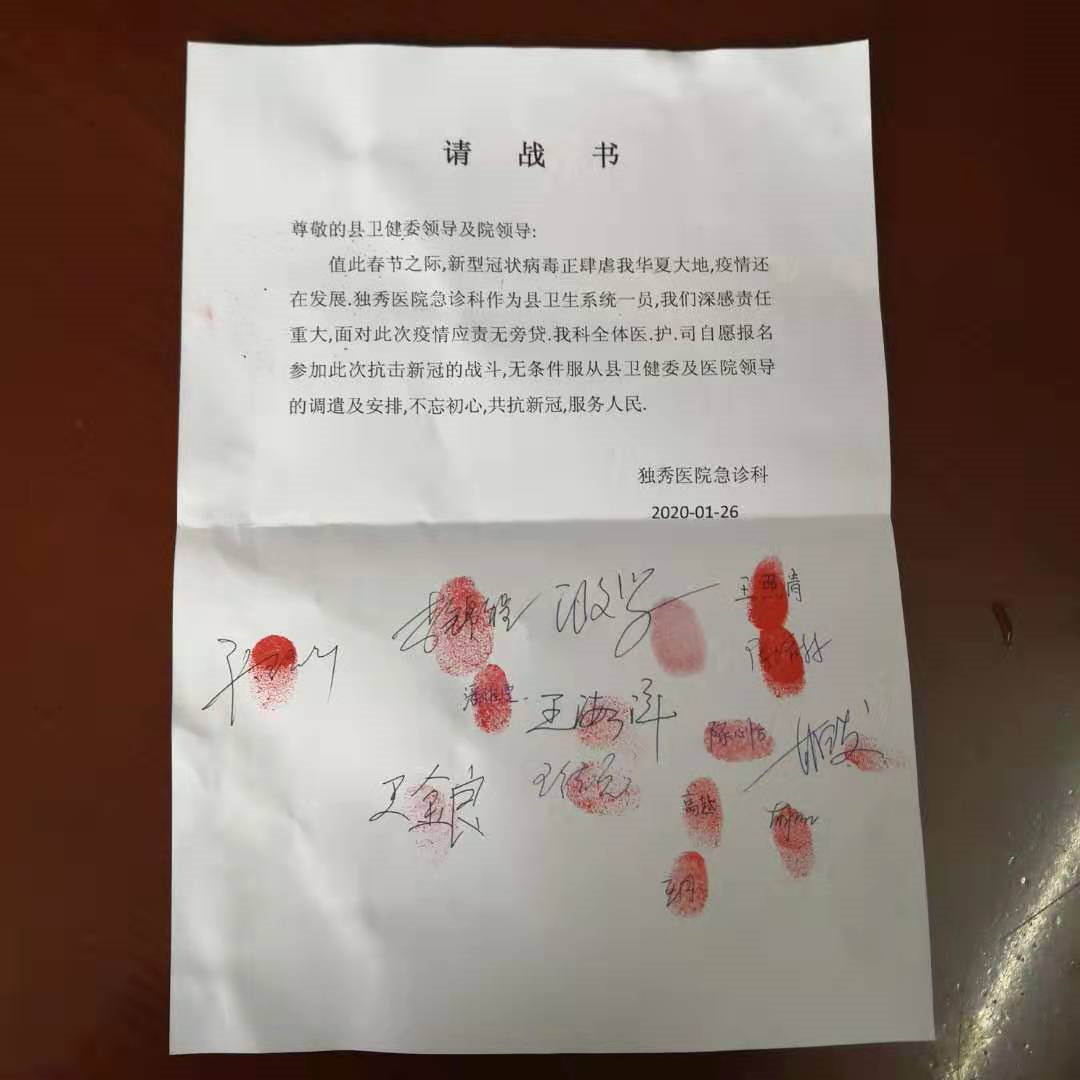 请 战 书
尊敬的县卫健委领导及院领导:
值此春节之际,新型冠状病毒正肆虐我华夏大地,疫情还
在发展.独秀医院急诊科作为县卫生系统一员,我们深感责任
重大,面对此次疫情应责无旁贷.我科全体医.护.司自愿报名
参加此次抗击新冠的战斗,无条件服从县卫健委及医院领导
的调遣及安排,不忘初心,共抗新冠,服务人民.
独秀医院急诊科
2020-01-26
王海洋